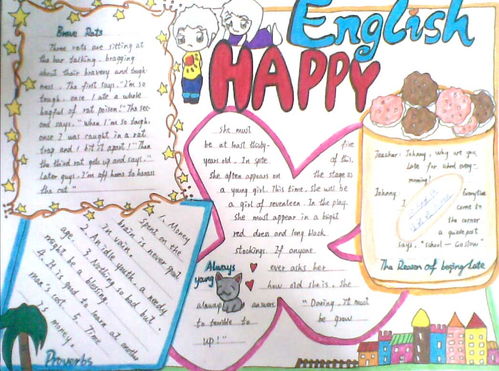 English
HAPPY
Brave Rats
Three rats are sitting at
the bar talking, bragging
about their bravery and tough-
ness. The first says, "I'm so
tough, once I ate a whole
bagful of rat poison!" The sec-
ond says, "When I'm so tough,
once I was caught in a rat
trap and I bit it apart!" Then
the third rat gets up and says, "
Later guys, I'm off home to harass
the cat."
she must
be at least thirty-five
years-old. In spite of this,
she often appears on the stage as
a young girl. This time, she will be
a girl of seventeen. In the play,
she must appear in a bright
red dress and long black
stockings. If anyone
ever asks her
how old she is, she
always answer,
"Darling, It must
be terrible to be grow
up!"
Always
young
Teacher: Johnny, Why are you
late for school every
morning?
Johnny Everytime
I come to
the corner
a guidepost
says, "School - Go Slow".
The Reason of being Late
1. Money
spent on the
brain is never spent
in vain.
2. An idle youth, a needy
age. 3. Nothing so bad but
might be a blessing.
4. It is good to learn at another
man's cost. 5. Time
is money.
Proverbs